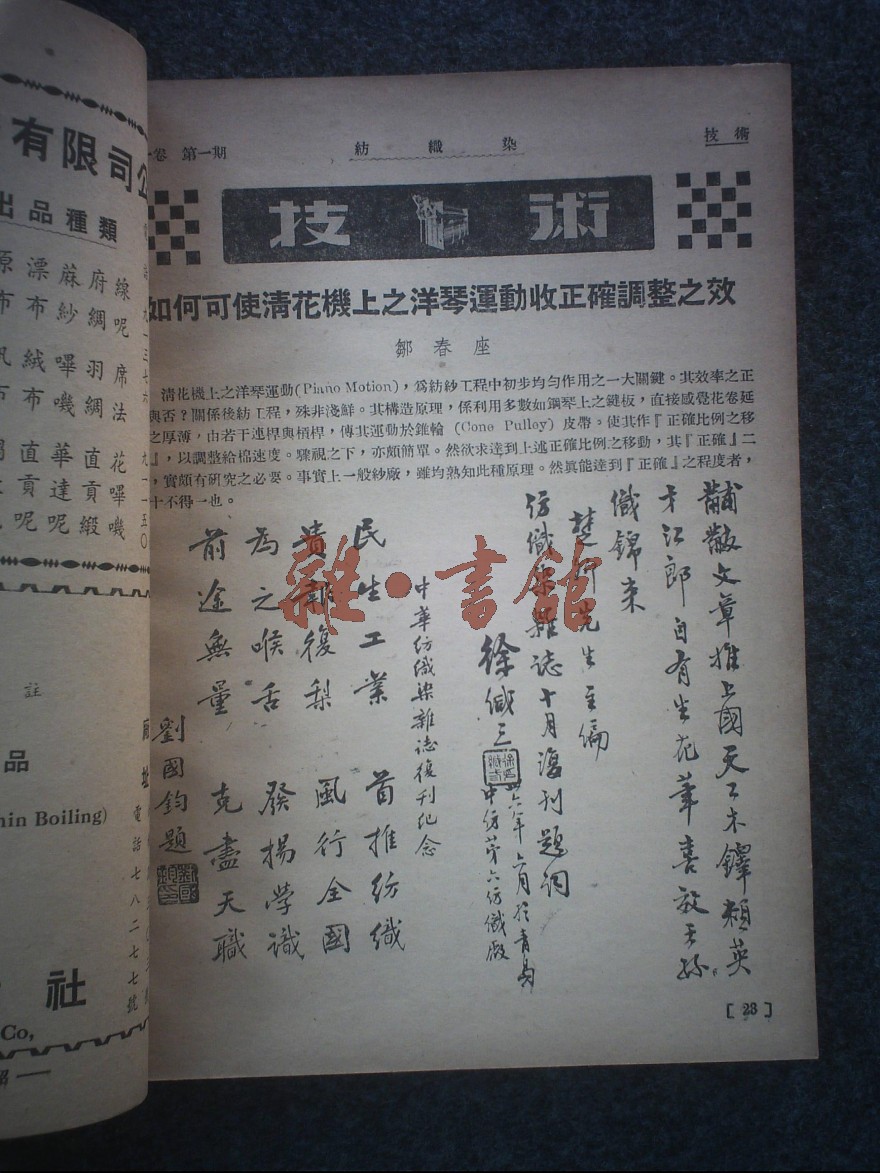 卷 第一期
紡織染
技術
技術
如何可使清花機上之洋琴運動收正確調整之效
鄒春座
清花機上之洋琴運動(Piano Motion)，為紡紗工程中初步均勻作用之一大關鍵。其效率之正
與否？關係後紡工程，殊非淺鮮。其構造原理，係利用多數如鋼琴上之鍵板，直接感覺花卷延
之厚薄，由若干連桿與槓桿，傳其運動於錐輪 (Cone Pulley) 皮帶。使其作『正確比例之移
』，以調整給棉速度。驟視之下，亦頗簡單。然欲求達到上述正確比例之移動，其『正確』二
，實頗有研究之必要。事實上一般紗廠，雖均熟知此種原理。然真能達到『正確』之程度者，
十不得一也。
黼黻文章推上國天工木鐸賴英
才江郎自有生花筆喜敎天孫
織錦來
楚卿先生主編
紡織染雜誌十月復刊題詞
徐緘三
卅六年六月於青島
中紡第六紡織廠
中華紡織染雜誌復刊紀念
民生工業 首推紡織
貴報復梨 風行全國
為之喉舌 發揚學識
前途無量 克盡天職
劉國鈞題
[23]
雜·書館
有限司公
出品種類
線呢 席法 花嗶嘰
府綢 羽綢 直貢緞
蔴紗 嗶嘰 華達呢
漂布 絨布 直貢呢
註
品
電話七八二七七號
Boiling)
社
Co,